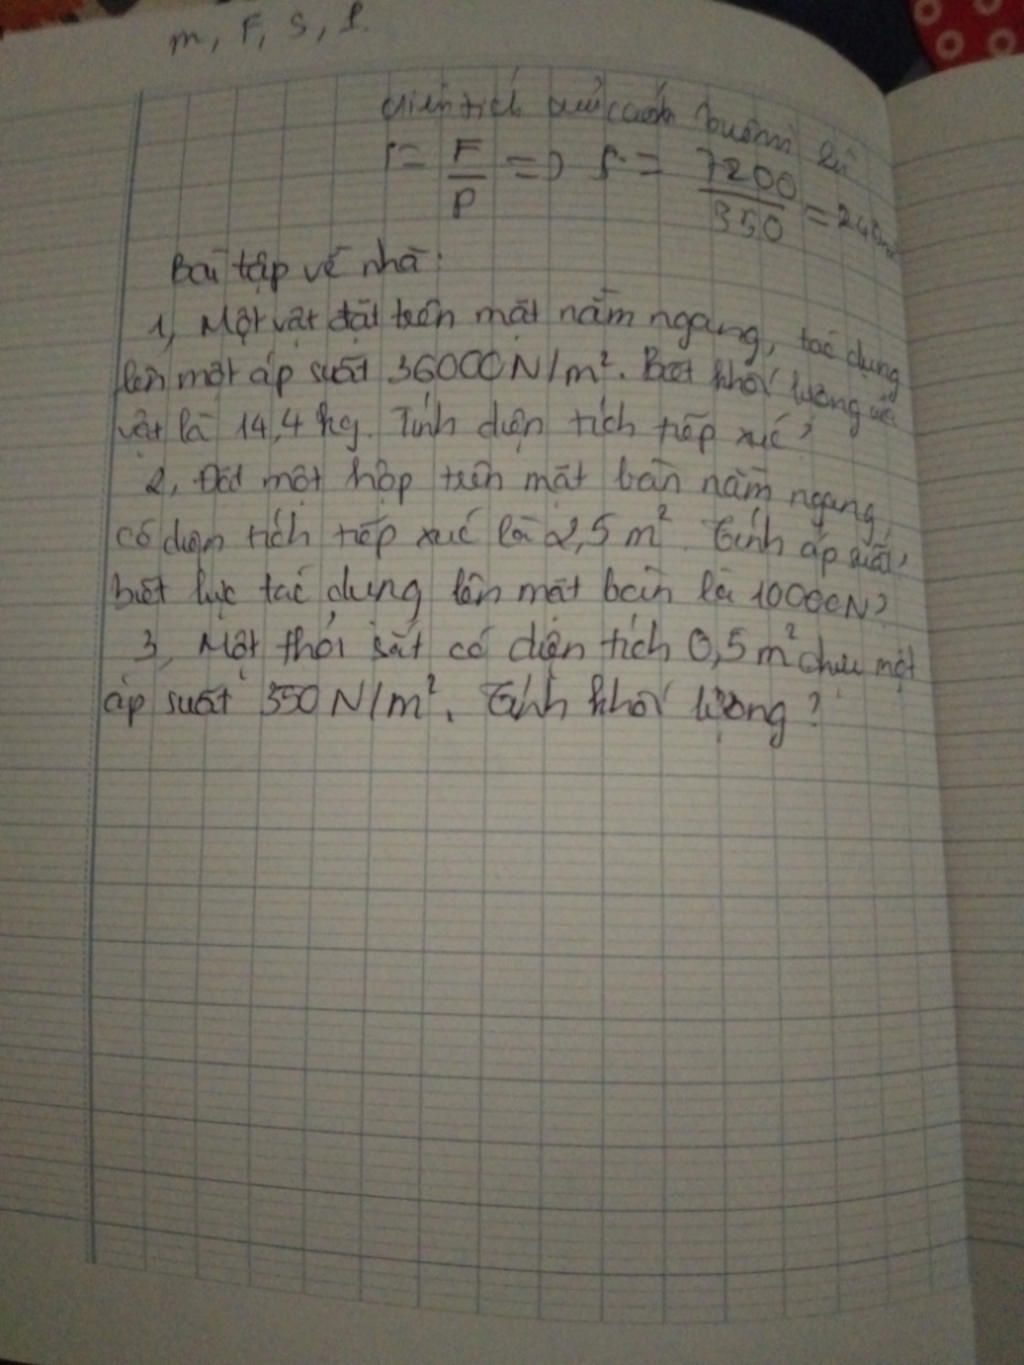 m, F, S, P.
diện tích của cánh buồm là
S = F/P => S = 7200/350 =
Bài tập về nhà:
1, Một vật đặt trên mặt nằm ngang, tác dụng
lên một áp suất 36000N/m². Biết khối lượng của
vật là 14,4 kg. Tính diện tích tiếp xúc?
2, Đặt một hộp trên mặt bàn nằm ngang,
có diện tích tiếp xúc là 2,5 m². Tính áp suất,
biết lực tác dụng lên mặt bàn là 10000N?
3, Một thỏi sắt có diện tích 0,5m² chịu một
áp suất 350 N/m². Tính khối lượng?